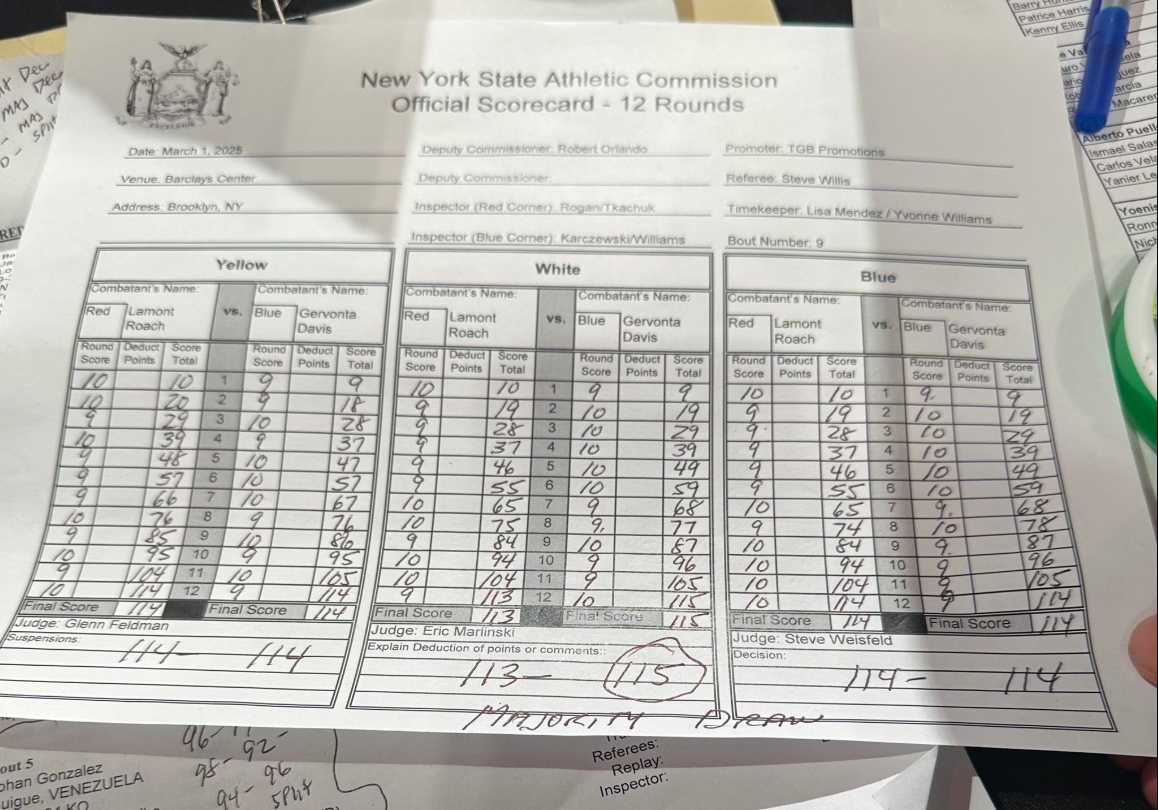 New York State Athletic Commission
Official Scorecard - 12 Rounds
Date: March 1, 2025 Deputy Commissioner: Robert Orlando Promoter: TGB Promotions
Venue: Barclays Center Deputy Commissioner: Referee: Steve Willis
Address: Brooklyn, NY Inspector (Red Corner): Rogan/Tkachuk Timekeeper: Lisa Mendez / Yvonne Williams
Inspector (Blue Corner): Karczewski/Williams Bout Number: 9
Yellow White Blue
Combatant's Name: vs. Combatant's Name: Combatant's Name: vs. Combatant's Name: Combatant's Name: vs. Combatant's Name:
Red Lamont Roach Blue Gervonta Davis Red Lamont Roach Blue Gervonta Davis Red Lamont Roach Blue Gervonta Davis
Round Score Deduct Points Score Total Round Score Deduct Points Score Total Round Score Deduct Points Score Total Round Score Deduct Points Score Total Round Score Deduct Points Score Total Round Score Deduct Points Score Total
10 10 1 9 9 10 10 1 9 9 10 10 1 9. 9
10 20 2 9 18 9 19 2 10 19 9 19 2 10 19
9 29 3 10 28 9 28 3 10 29 9 28 3 10 29
10 39 4 9 37 9 37 4 10 39 9 37 4 10 39
9 48 5 10 47 9 46 5 10 49 9 46 5 10 49
9 57 6 10 57 9 55 6 10 59 9 55 6 10 59
9 66 7 10 67 10 65 7 9 68 10 65 7 9. 68
10 76 8 9 76 10 75 8 9. 77 9 74 8 10 78
9 85 9 10 86 9 84 9 10 87 10 84 9 9. 87
10 95 10 9 95 10 94 10 9 96 10 94 10 9 96
9 104 11 10 105 10 104 11 9 105 10 104 11 9 105
10 114 12 9 114 9 113 12 10 115 10 114 12 9 114
Final Score 114 Final Score 114 Final Score 113 Final Score 115 Final Score 114 Final Score 114
Judge: Glenn Feldman Judge: Eric Marlinski Judge: Steve Weisfeld
Suspensions: Explain Deduction of points or comments:: Decision:
114- 114 113- 115 114- 114
MAJORITY DRAW
Patrice Harris
Kenny Ellis
Alberto Puell
Ismael Salas
Carlos Vel
Yanier Le
Yoenis
96-
92-
98- 96
94- split
out 5
ohan Gonzalez
uigue, VENEZUELA
KO
Referees:
Replay:
Inspector: